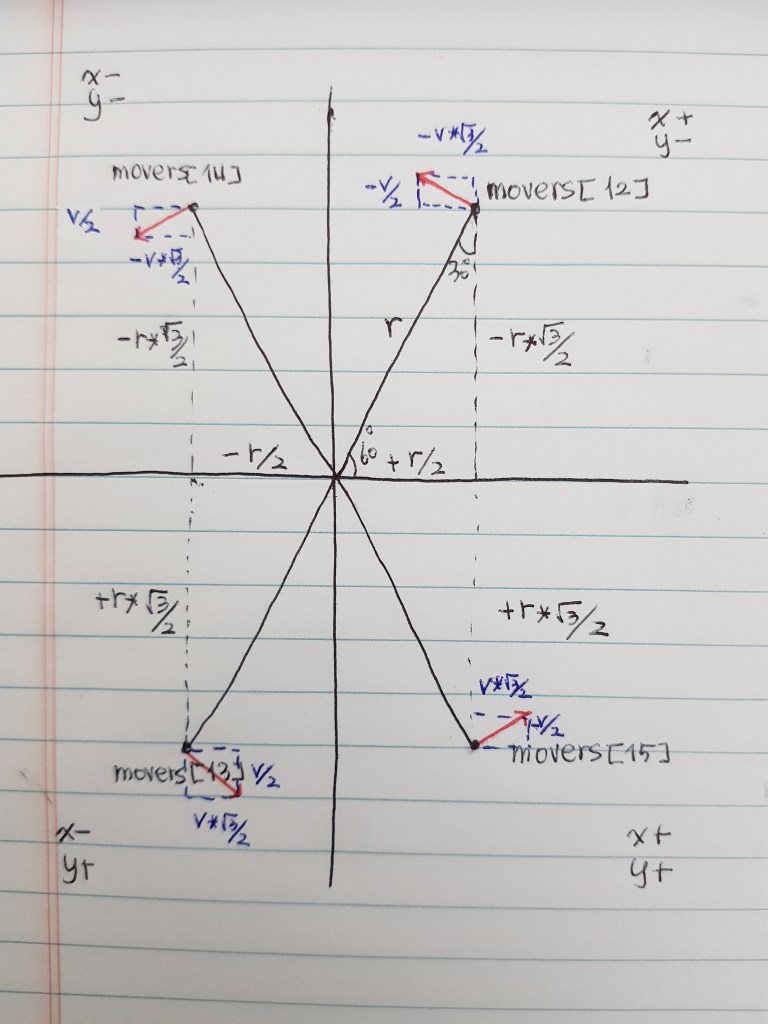 x-
y-
x+
y-
-v*√3/2
movers[14]
-v/2
movers[12]
v/2
-v*√3/2
30°
r
-r*√3/2
-r*√3/2
-r/2
60°
+r/2
+r*√3/2
+r*√3/2
v*√3/2
-v/2
movers[15]
movers[13]
v/2
v*√3/2
x-
y+
x+
y+